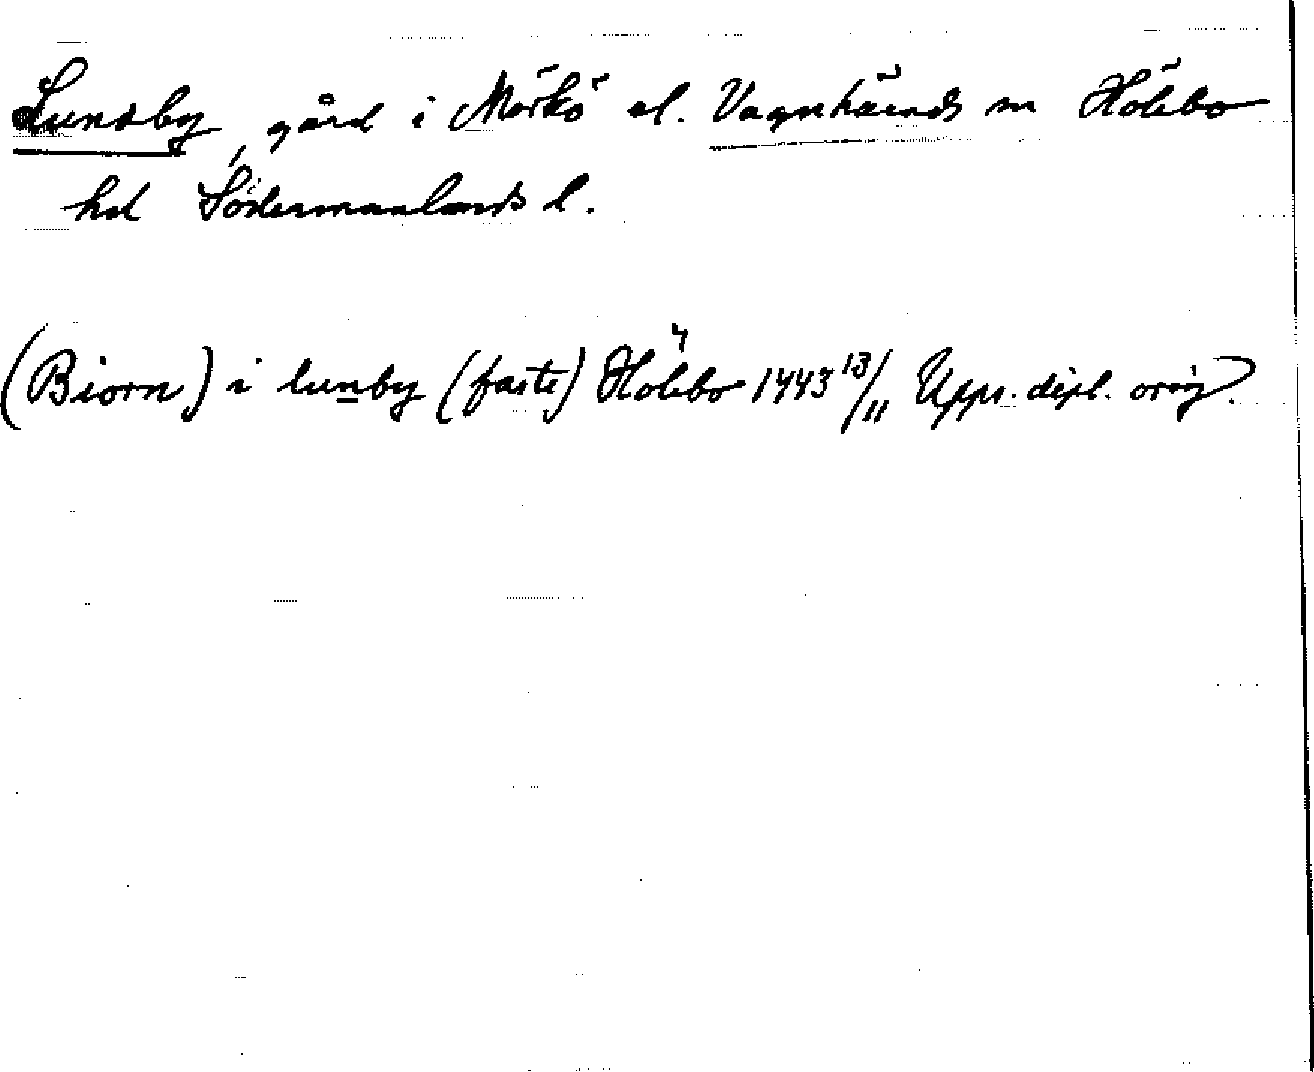 Lundby, gård i Mörkö el. Vagnhärads sn Hölebo
hd Södermanlands l.
(Biorn) i lunby (faste) Hölebo 1443 13/11 Upps. dipl. orig.